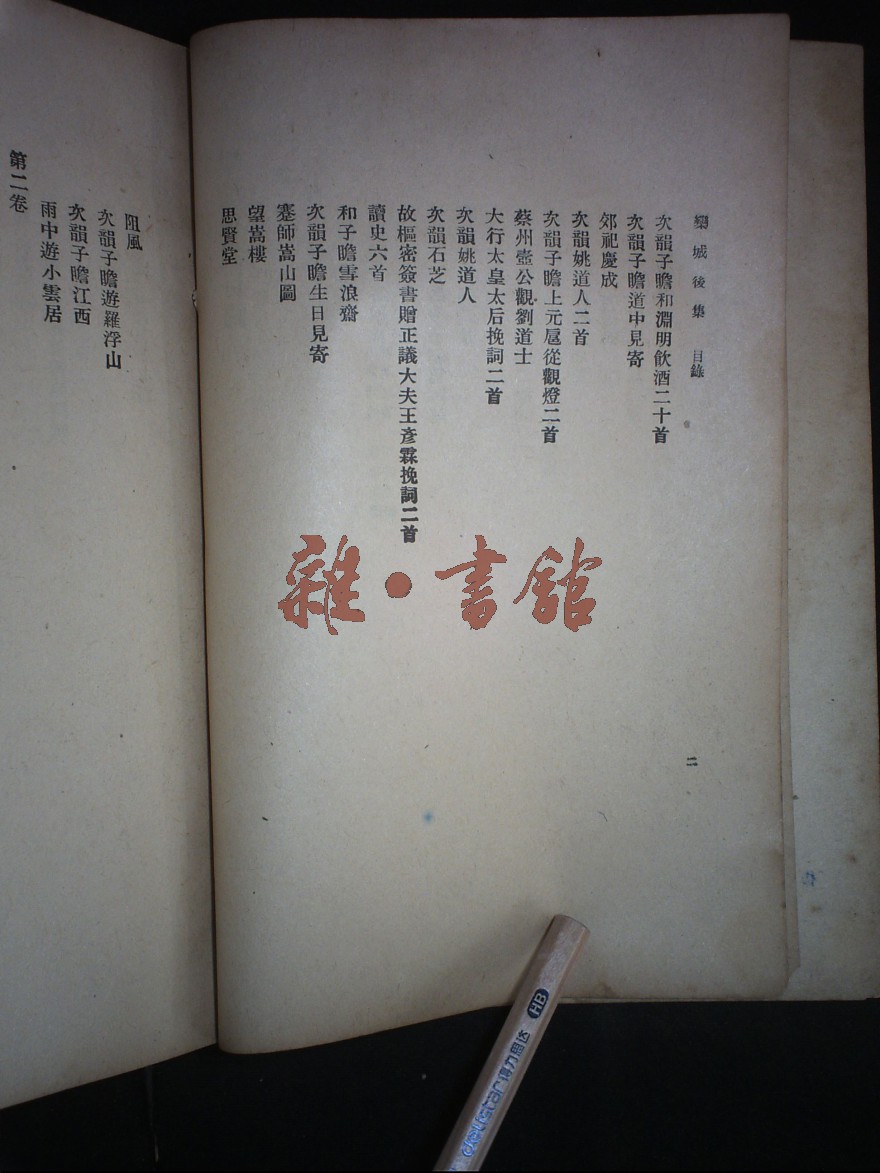 欒城後集 目錄
次韻子瞻和淵明飲酒二十首
次韻子瞻道中見寄
郊祀慶成
次韻姚道人二首
次韻子瞻上元扈從觀燈二首
蔡州壺公觀劉道士
大行太皇太后挽詞二首
次韻姚道人
次韻石芝
故樞密簽書贈正議大夫王彥霖挽詞二首
讀史六首
和子瞻雪浪齋
次韻子瞻生日見寄
蹇師嵩山圖
望嵩樓
思賢堂
二
阻風
次韻子瞻遊羅浮山
次韻子瞻江西
雨中遊小雲居
第二卷
雜·書館
HB
得力